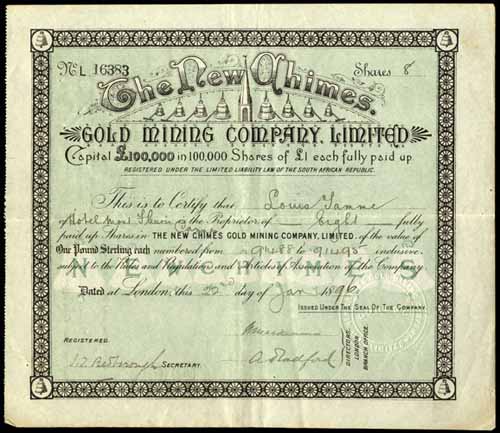 No. L 16383 Shares 8
The New Chimes.
GOLD MINING COMPANY, LIMITED
Capital £100,000 in 100,000 Shares of £1 each fully paid up
REGISTERED UNDER THE LIMITED LIABILITY LAW OF THE SOUTH AFRICAN REPUBLIC.
This is to Certify that Louis
of Hotel Mont is the Proprietor of Eight fully
paid up Shares in THE NEW CHIMES GOLD MINING COMPANY, LIMITED, of the value of
One Pound Sterling each numbered from 91488 to 91495 inclusive
subject to the Rules and Regulations and Articles of Association of the Company
Dated at London, this 22nd day of Jan 1896.
ISSUED UNDER THE SEAL OF THE COMPANY
REGISTERED.
SECRETARY.
A. Radford
DIRECTORS,
LONDON
BRANCH OFFICE.